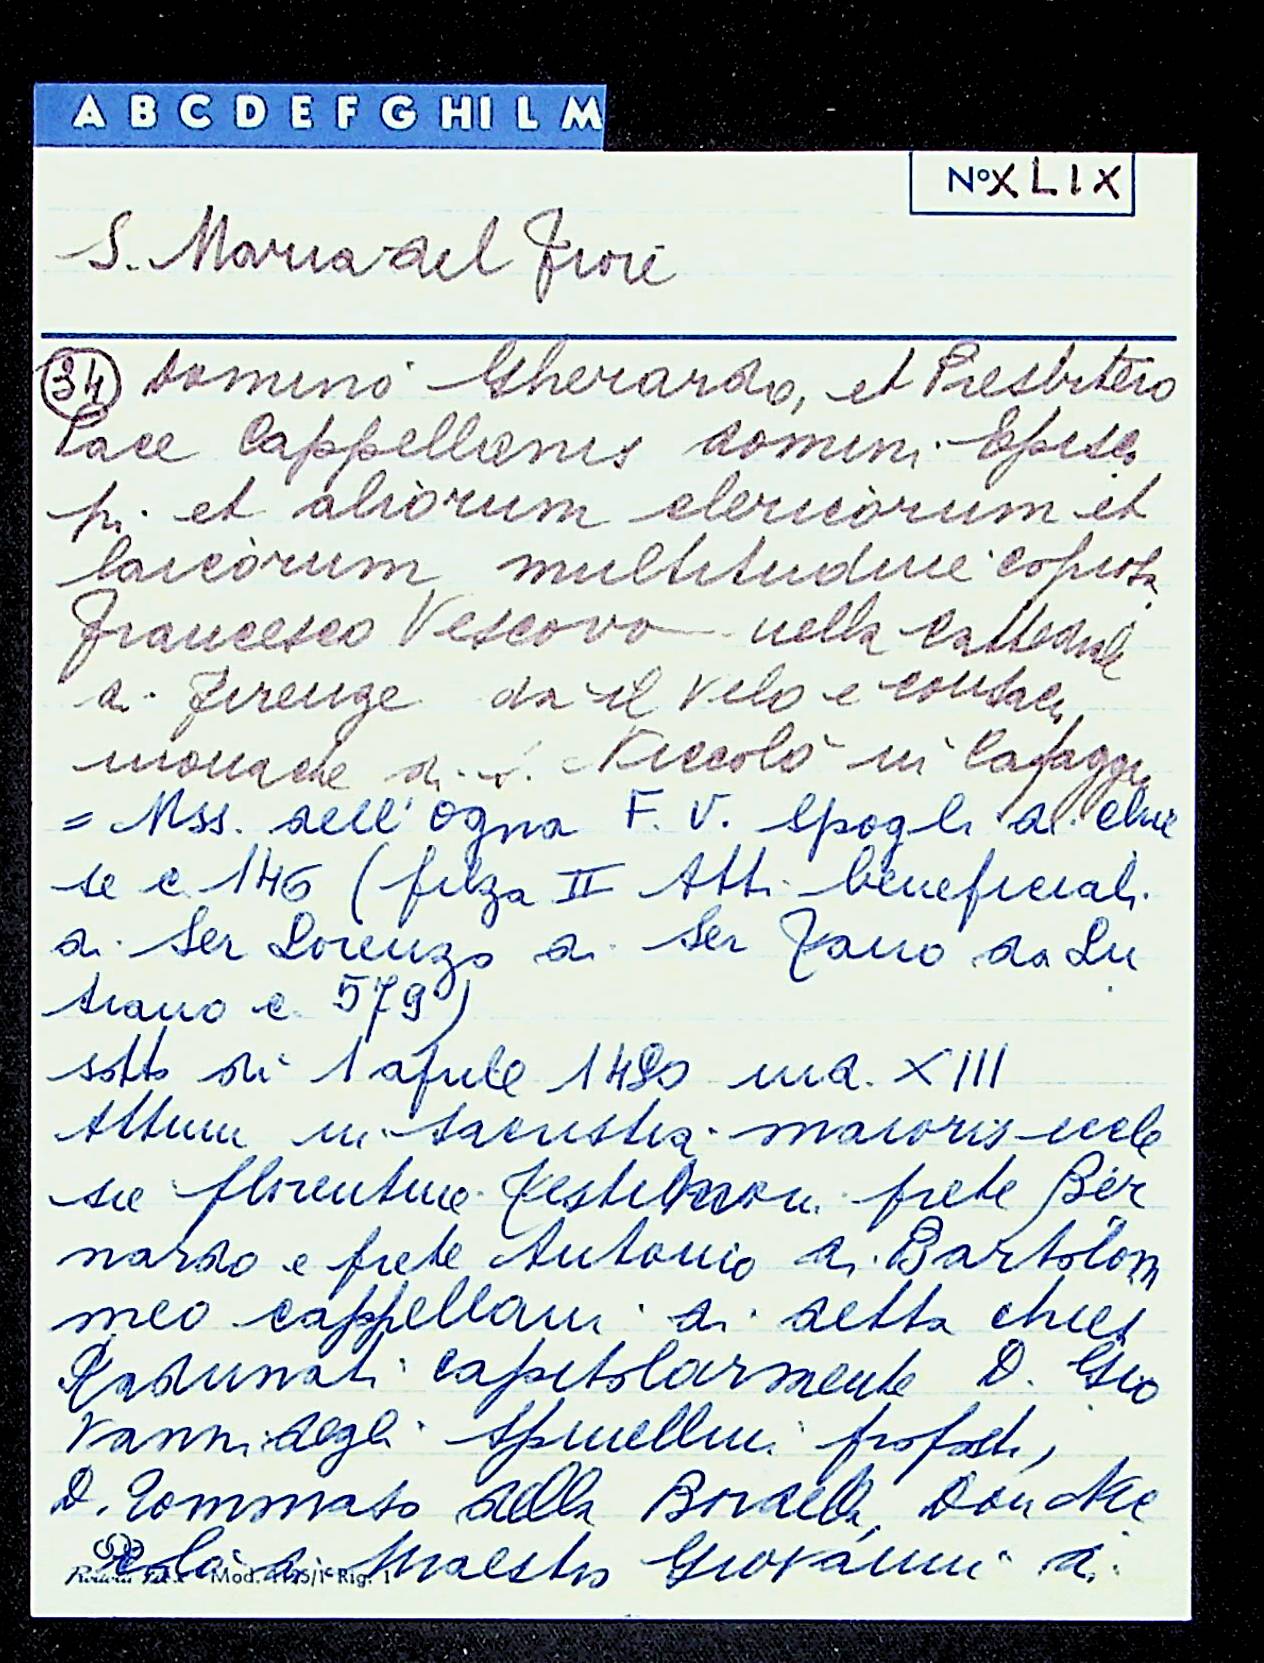 A B C D E F G HI L M
N° X L I X
S. Maria del Fiore
34 domino Gherardo, et Presbitero
Pace Cappellanis domini Episco
pi et aliorum clericorum et
laicorum multitudine copiosa
Francesco Vescovo nella Cattedrale
di Firenze da il velo e consacra
monache di S. Niccolò in Cafaggio
= Mss. dell'Ogna F. V. Spogli di chie
se c. 146 (filza II Atti beneficiali
di Ser Lorenzo di Ser Tano da Lu
triano c. 579)
sotto di 1 aprile 1480 ind. XIII
Attum in sacristia maioris eccle
sie florentine Testimoni prete Ber
nardo e prete Antonio di Bartolom
meo cappellani di detta chiesa
Radunati capitolarmente D. Gio
vanni degli Spinellini proposto,
D. Tommaso della Bordella, Don Nic
colò di Maestro Giovanni di
Mod. Rig. 1